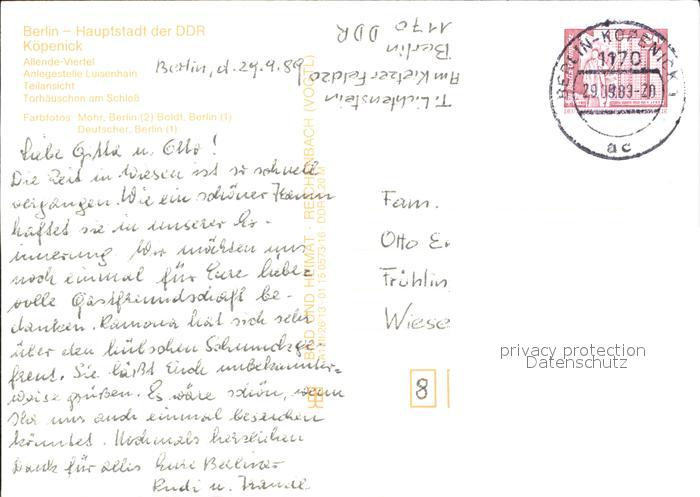 Berlin – Hauptstadt der DDR
Köpenick
Allende-Viertel
Anlegestelle Luisenhain
Teilansicht
Torhäuschen am Schloß
Farbfotos: Mohr, Berlin (2) Boldt, Berlin (1)
Deutscher, Berlin (1)
Berlin, d. 29.9.89
T. Lichtenstein
Am Kietzer Feld 20
Berlin
1170 DDR
BERLIN-KÖPENICK 1
1170
29.09.89-20
ac
Liebe Gitta u. Otto!
Die Zeit in Wiesen ist so schnell
vergangen. Wie ein schöner Traum
haftet sie in unserer Er-
innerung. Wir möchten uns
noch einmal für Eure liebe-
volle Gastfreundschaft be-
danken. Ramona hat sich sehr
über den hübschen Schmuck ge-
freut. Sie läßt Euch unbekannter-
weise grüßen. Es wäre schön, wenn
Ihr uns auch einmal besuchen
könntet. Nochmals herzlichen
Dank für alles Eure Berliner
Rudi u. Traudl
BILD UND HEIMAT · REICHENBACH (VOGTL)
01 15 0573/16 · DDR
Fam.
Otto
Frühlin
Wiese
8
privacy protection
Datenschutz